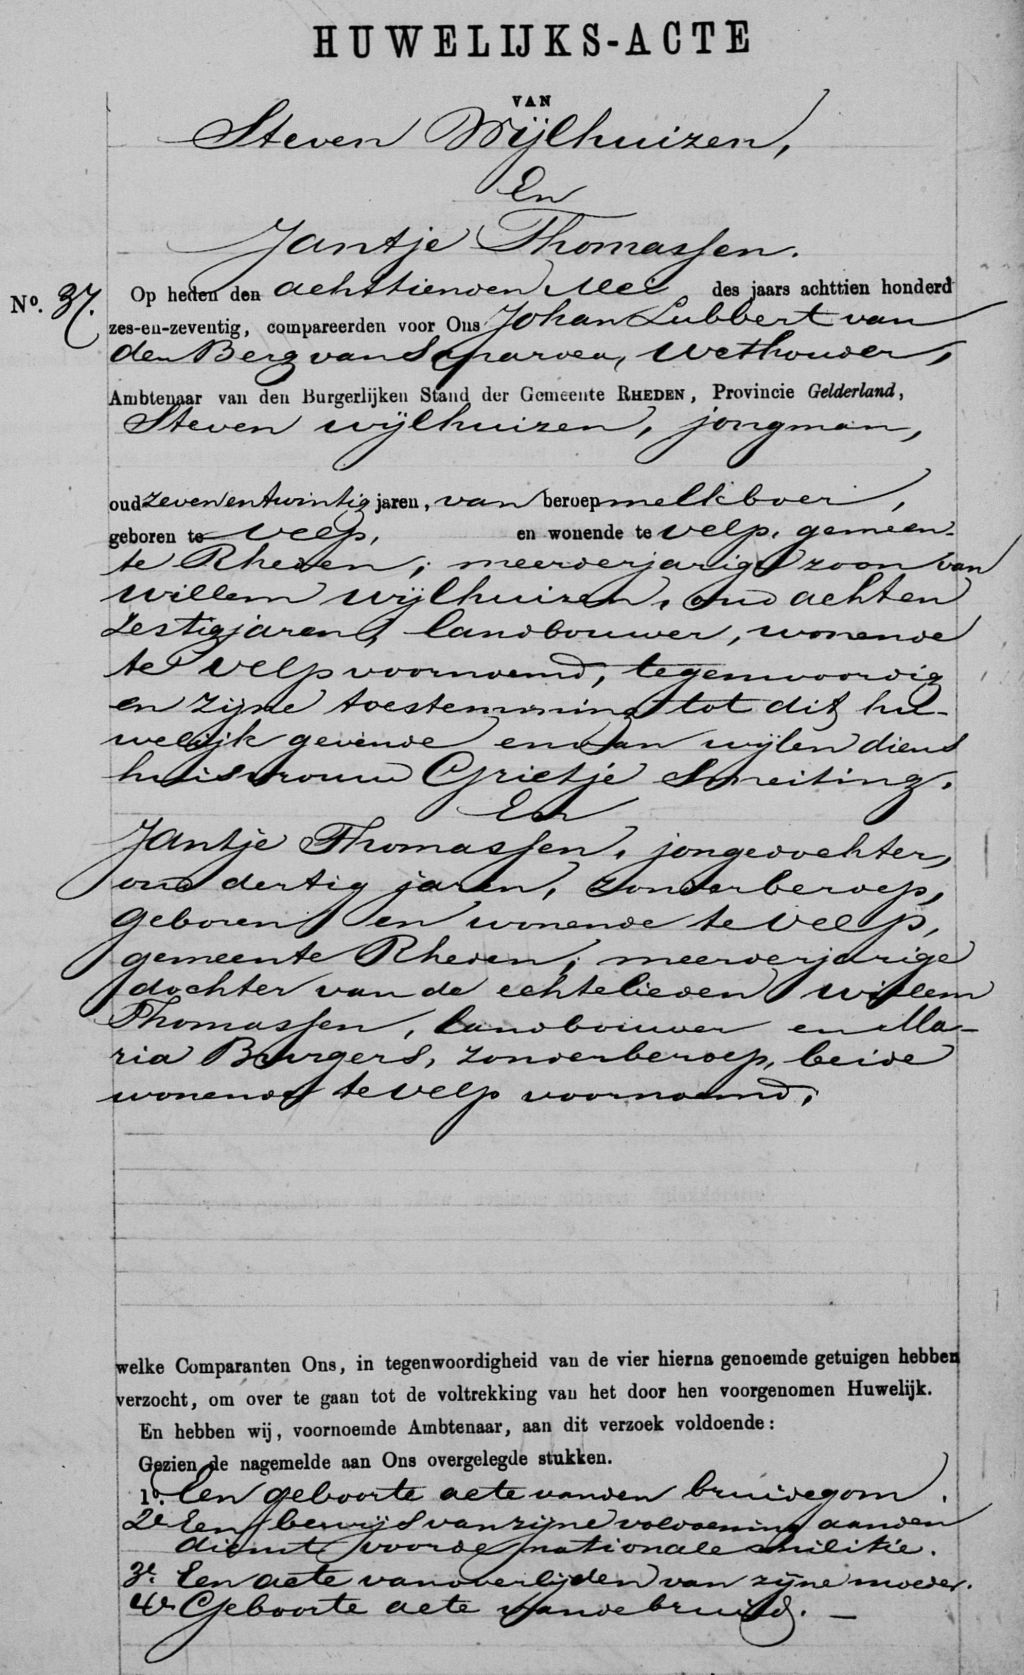 HUWELIJKS-ACTE
VAN
Steven Wijlhuizen,
En
Jantje Thomassen.
No. 37. Op heden den achttienden Mei des jaars achttien honderd
zes-en-zeventig, compareerden voor Ons Johan Lubbert van
den Berg van Saparoea, Wethouder,
Ambtenaar van den Burgerlijken Stand der Gemeente RHEDEN, Provincie Gelderland,
Steven wijlhuizen, jongman,
oud zevenentwintig jaren, van beroep melkboer,
geboren te Velp, en wonende te Velp, gemeen-
te Rheden, meerderjarige zoon van
willem wijlhuizen, oud achten
zestig jaren, landbouwer, wonende
te Velp voornoemd, tegenwoordig
en zijne toestemming tot dit hu-
welijk gevende en van wijlen diens
huisvrouw Grietje Smeiting.
En
Jantje Thomassen, jongedochter,
oud dertig jaren, zonder beroep,
geboren en wonende te Velp,
gemeente Rheden, meerderjarige
dochter van de echtelieden willem
Thomassen, landbouwer en Ma-
ria Burgers, zonder beroep, beide
wonende te Velp voornoemd,
welke Comparanten Ons, in tegenwoordigheid van de vier hierna genoemde getuigen hebben
verzocht, om over te gaan tot de voltrekking van het door hen voorgenomen Huwelijk.
En hebben wij, voornoemde Ambtenaar, aan dit verzoek voldoende:
Gezien de nagemelde aan Ons overgelegde stukken.
1o. Een geboorte acte van den bruidegom.
2e Een bewijs van zijne voldoening aan den
dienst voor de nationale militie.
3e. Een acte van overlijden van zijne moeder.
4e Geboorte acte van de bruid. —